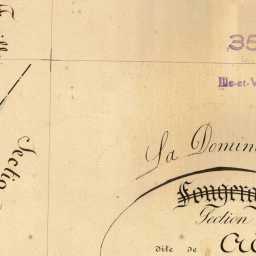 35
Ille-et-V
La Domin
Fougera
Section
dite de
Cr
Sectio